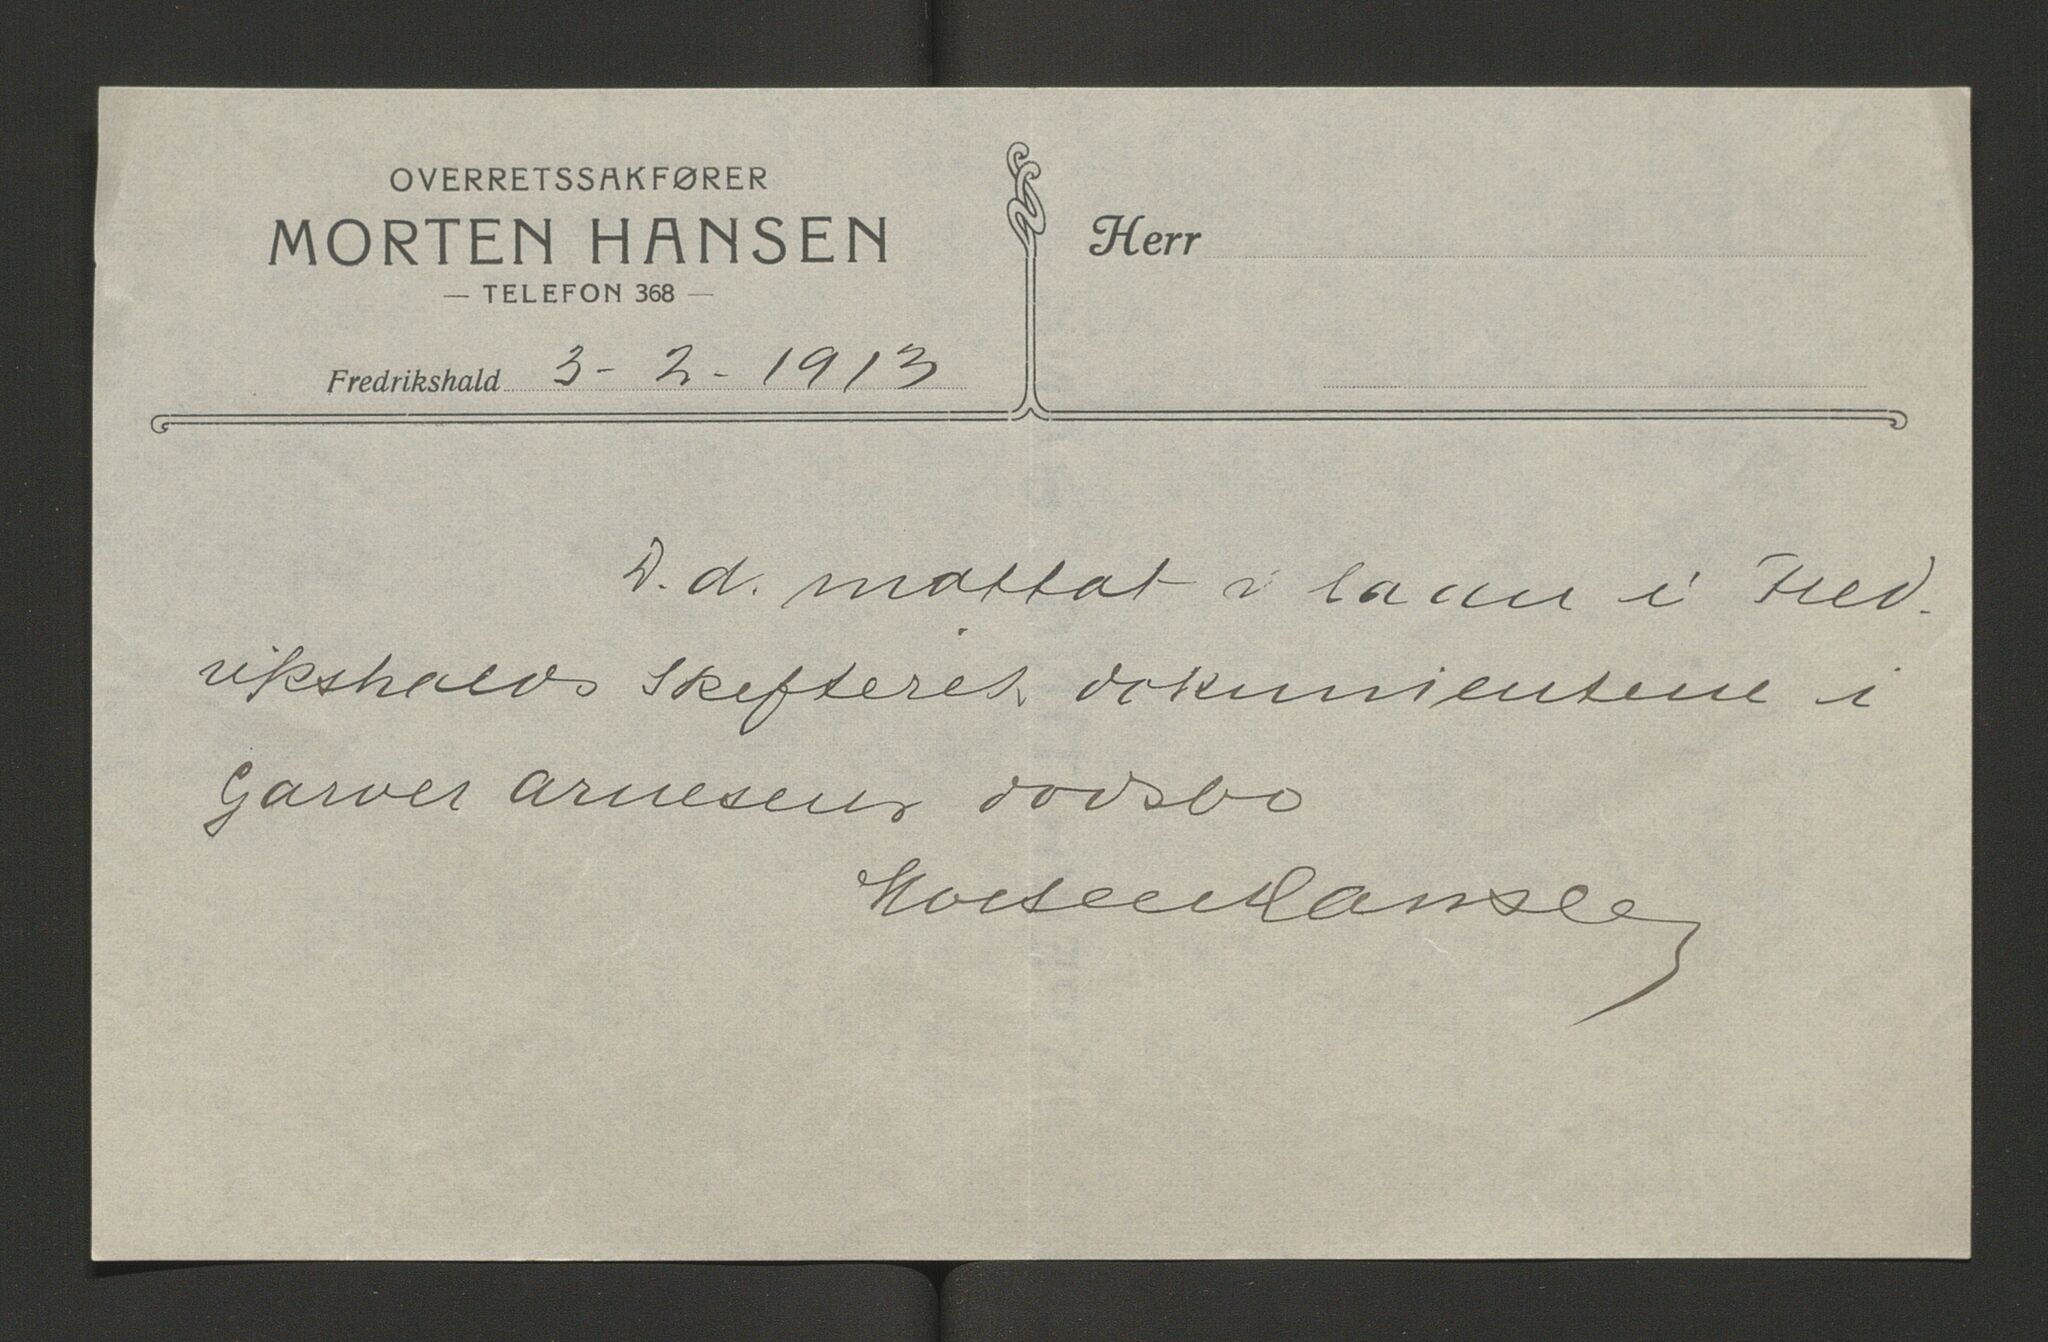 OVERRETSSAKFØRER
MORTEN HANSEN
— TELEFON 368 —
Fredrikshald 3-2-1913
Herr
D.d. mottat i laan i Fred-
rikshalds Skifteret dokumentene i
Garver Arnesens dødsbo
Morten Hansen